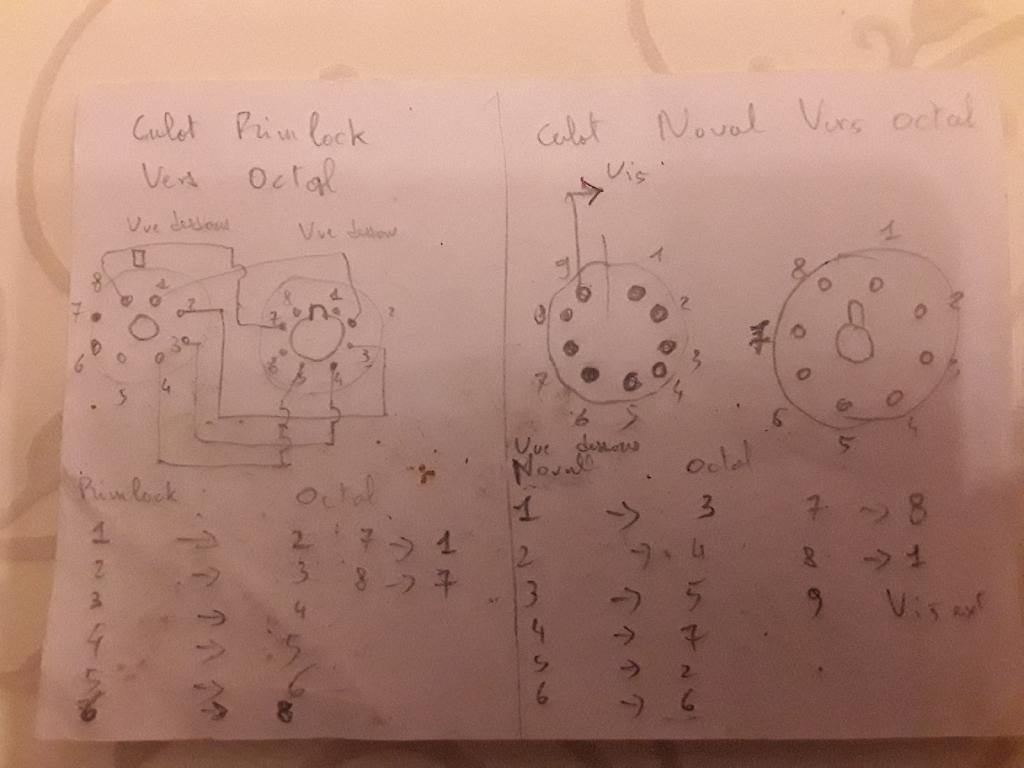 Culot Rimlock
Vers Octal
Vue dessous Vue dessous
8 1 2 3 4 5 6 7
8 1 2 3 4 5 6 7
Rimlock Octal
1 → 2 7 → 1
2 → 3 8 → 7
3 → 4
4 → 5
5 → 6
6 → 8
Culot Noval Vers octal
Vis
9 1 2 3 4 5 6 7 8
8 1 2 3 4 5 6 7
Vue dessous
Noval Octal
1 → 3 7 → 8
2 → 4 8 → 1
3 → 5 9 Vis
4 → 7
5 → 2
6 → 6